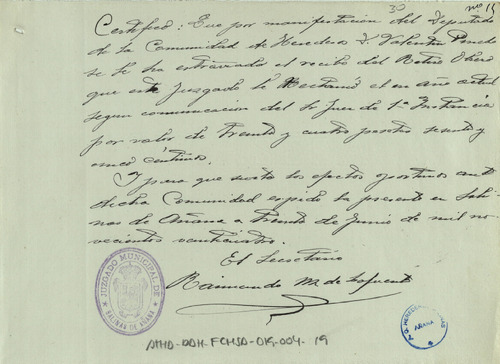 30 nº 15
Certifico: Que por manifestación del Diputado
de la Comunidad de Herederos D. Valentin
se le ha extraviado el recibo del Retiro Obrero
que este Juzgado le el en año actual
segun comunicacion del Sr Juez de 1ª Instancia
por valor de treinta y cuatro pesetas sesenta y
cinco céntimos.
Y para que surta los efectos oportunos ante
dicha Comunidad expido la presente en Sali-
nas de Añana a treinta de Junio de mil no-
vecientos veinticuatro.
El Secretario
Raimundo M. de Lafuente
JUZGADO MUNICIPAL DE
SALINAS DE AÑANA
AÑANA
4
AHHD-DDH-FCHSD-019-004-19